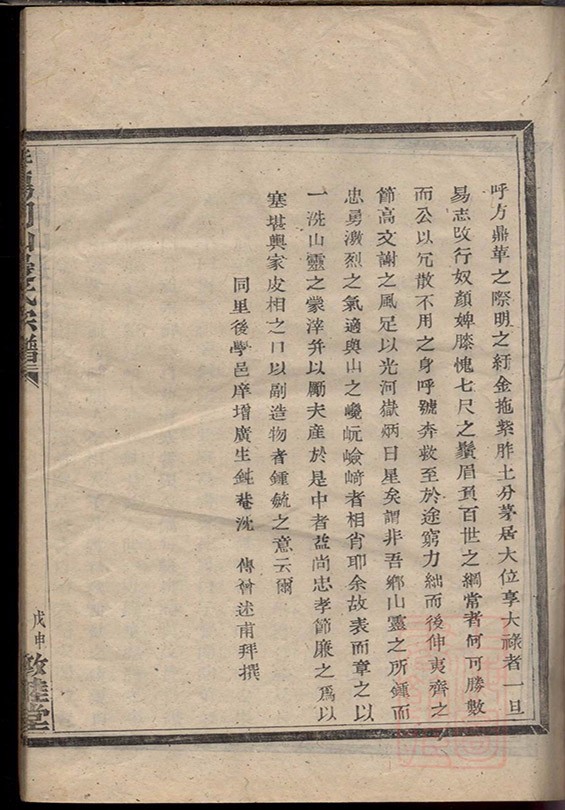 呼方鼎革之際明之紆金拖紫胙土分茅居大位享大祿者一旦
易志改行奴顏婢膝愧七尺之鬚眉負百世之綱常者何可勝數
而公以冗散不用之身呼號奔救至於途窮力絀而後伸夷齊之
節高文謝之風足以光河嶽炳日星矣謂非吾鄉山靈之所鍾而
忠勇激烈之氣適與山之巉岏嶮崎者相肖耶余故表而章之以
一洗山靈之蒙滓并以勵夫產於是中者益尚忠孝節廉之爲以
塞堪輿家皮相之口以副造物者鍾毓之意云爾
同里後學邑庠增廣生鈍菴沈 傳曾述甫拜撰
山 氏宗譜
戊申 敦睦堂